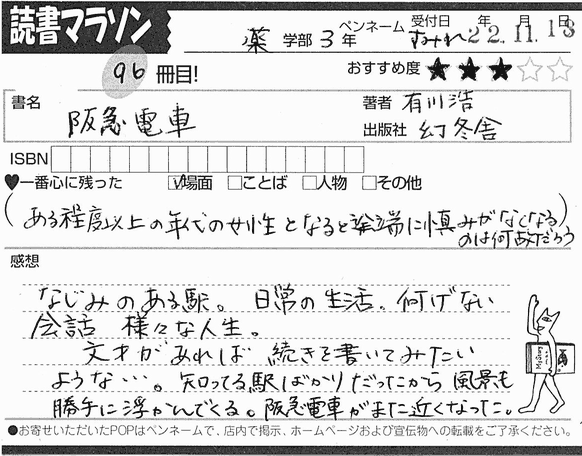 読書マラソン
薬 学部 3 年 ペンネーム すみれ 受付日 年 月 日 22.11.18
96 冊目! おすすめ度 ★★★☆☆
書名 阪急電車 著者 有川浩
出版社 幻冬舎
ISBN
♥一番心に残った ☑場面 □ことば □人物 □その他
(ある程度以上の年代の女性となると途端に慎みがなくなる
のは何故だろう)
感想
なじみのある駅。日常の生活、何げない
会話 様々な人生。
文才があれば 続きを書いてみたい
ような…。知ってる駅ばかりだったから 風景も
勝手に浮かんでくる。阪急電車がまた近くなった。
●お寄せいただいたPOPはペンネームで、店内で掲示、ホームページおよび宣伝物への転載をご了承ください。